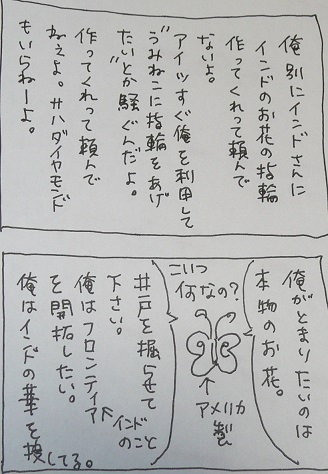 俺別にインドさんに
インドのお花の指輪
作ってくれって頼んで
ないよ。
アイツすぐ俺を利用して
"うみねこに指輪をあげ
たい"とか騒ぐんだよ。
作ってくれって頼んで
ねえよ。サハダイヤモンド
もいらねーよ。
俺がとまりたいのは
本物のお花。
こいつ
何なの?
アメリカ
製
井戸を掘らせて
下さい。
俺はフロンティア
インド
のこと
を開拓したい。
俺はインドの華を探してる。